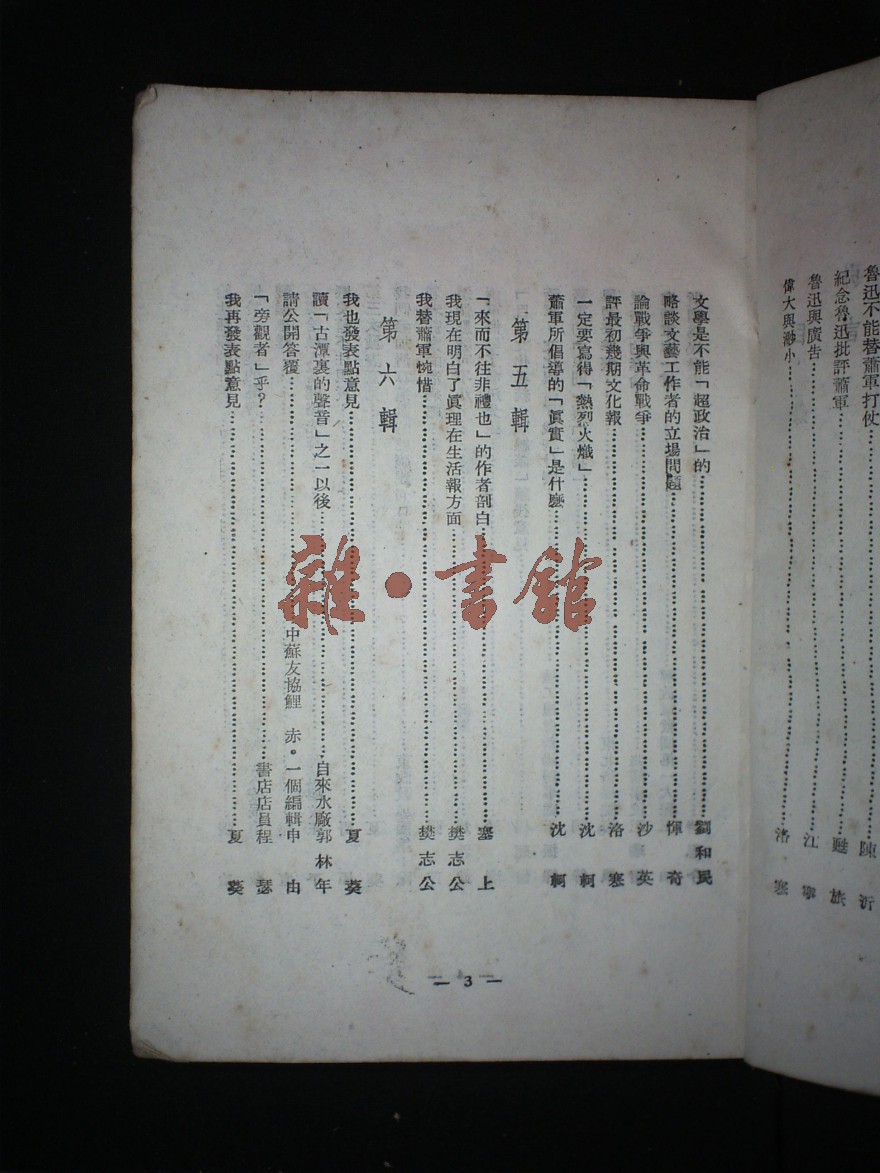 魯迅不能替蕭軍打仗……陳沂
紀念魯迅批評蕭軍……甦旅
魯迅與廣告……江寧
偉大與渺小……洛塞
文學是不能「超政治」的……劉和民
略談文藝工作者的立場問題……惲奇
論戰爭與革命戰爭……沙英
評最初幾期文化報……洛塞
一定要寫得「熱烈火熾」……沈柯
蕭軍所倡導的「眞實」是什麼……沈軻
第五輯
「來而不往非禮也」的作者剖白……塞上
我現在明白了眞理在生活報方面……樊志公
我替蕭軍惋惜……樊志公
第六輯
我也發表點意見……夏葵
讀「古潭裏的聲音」之一以後……自來水廠郭林年
請公開答覆……中蘇友協鯉 赤。一個編輯申 由
「旁觀者」乎？……書店店員程 瑟
我再發表點意見……夏葵
— 3 —
雜·書館